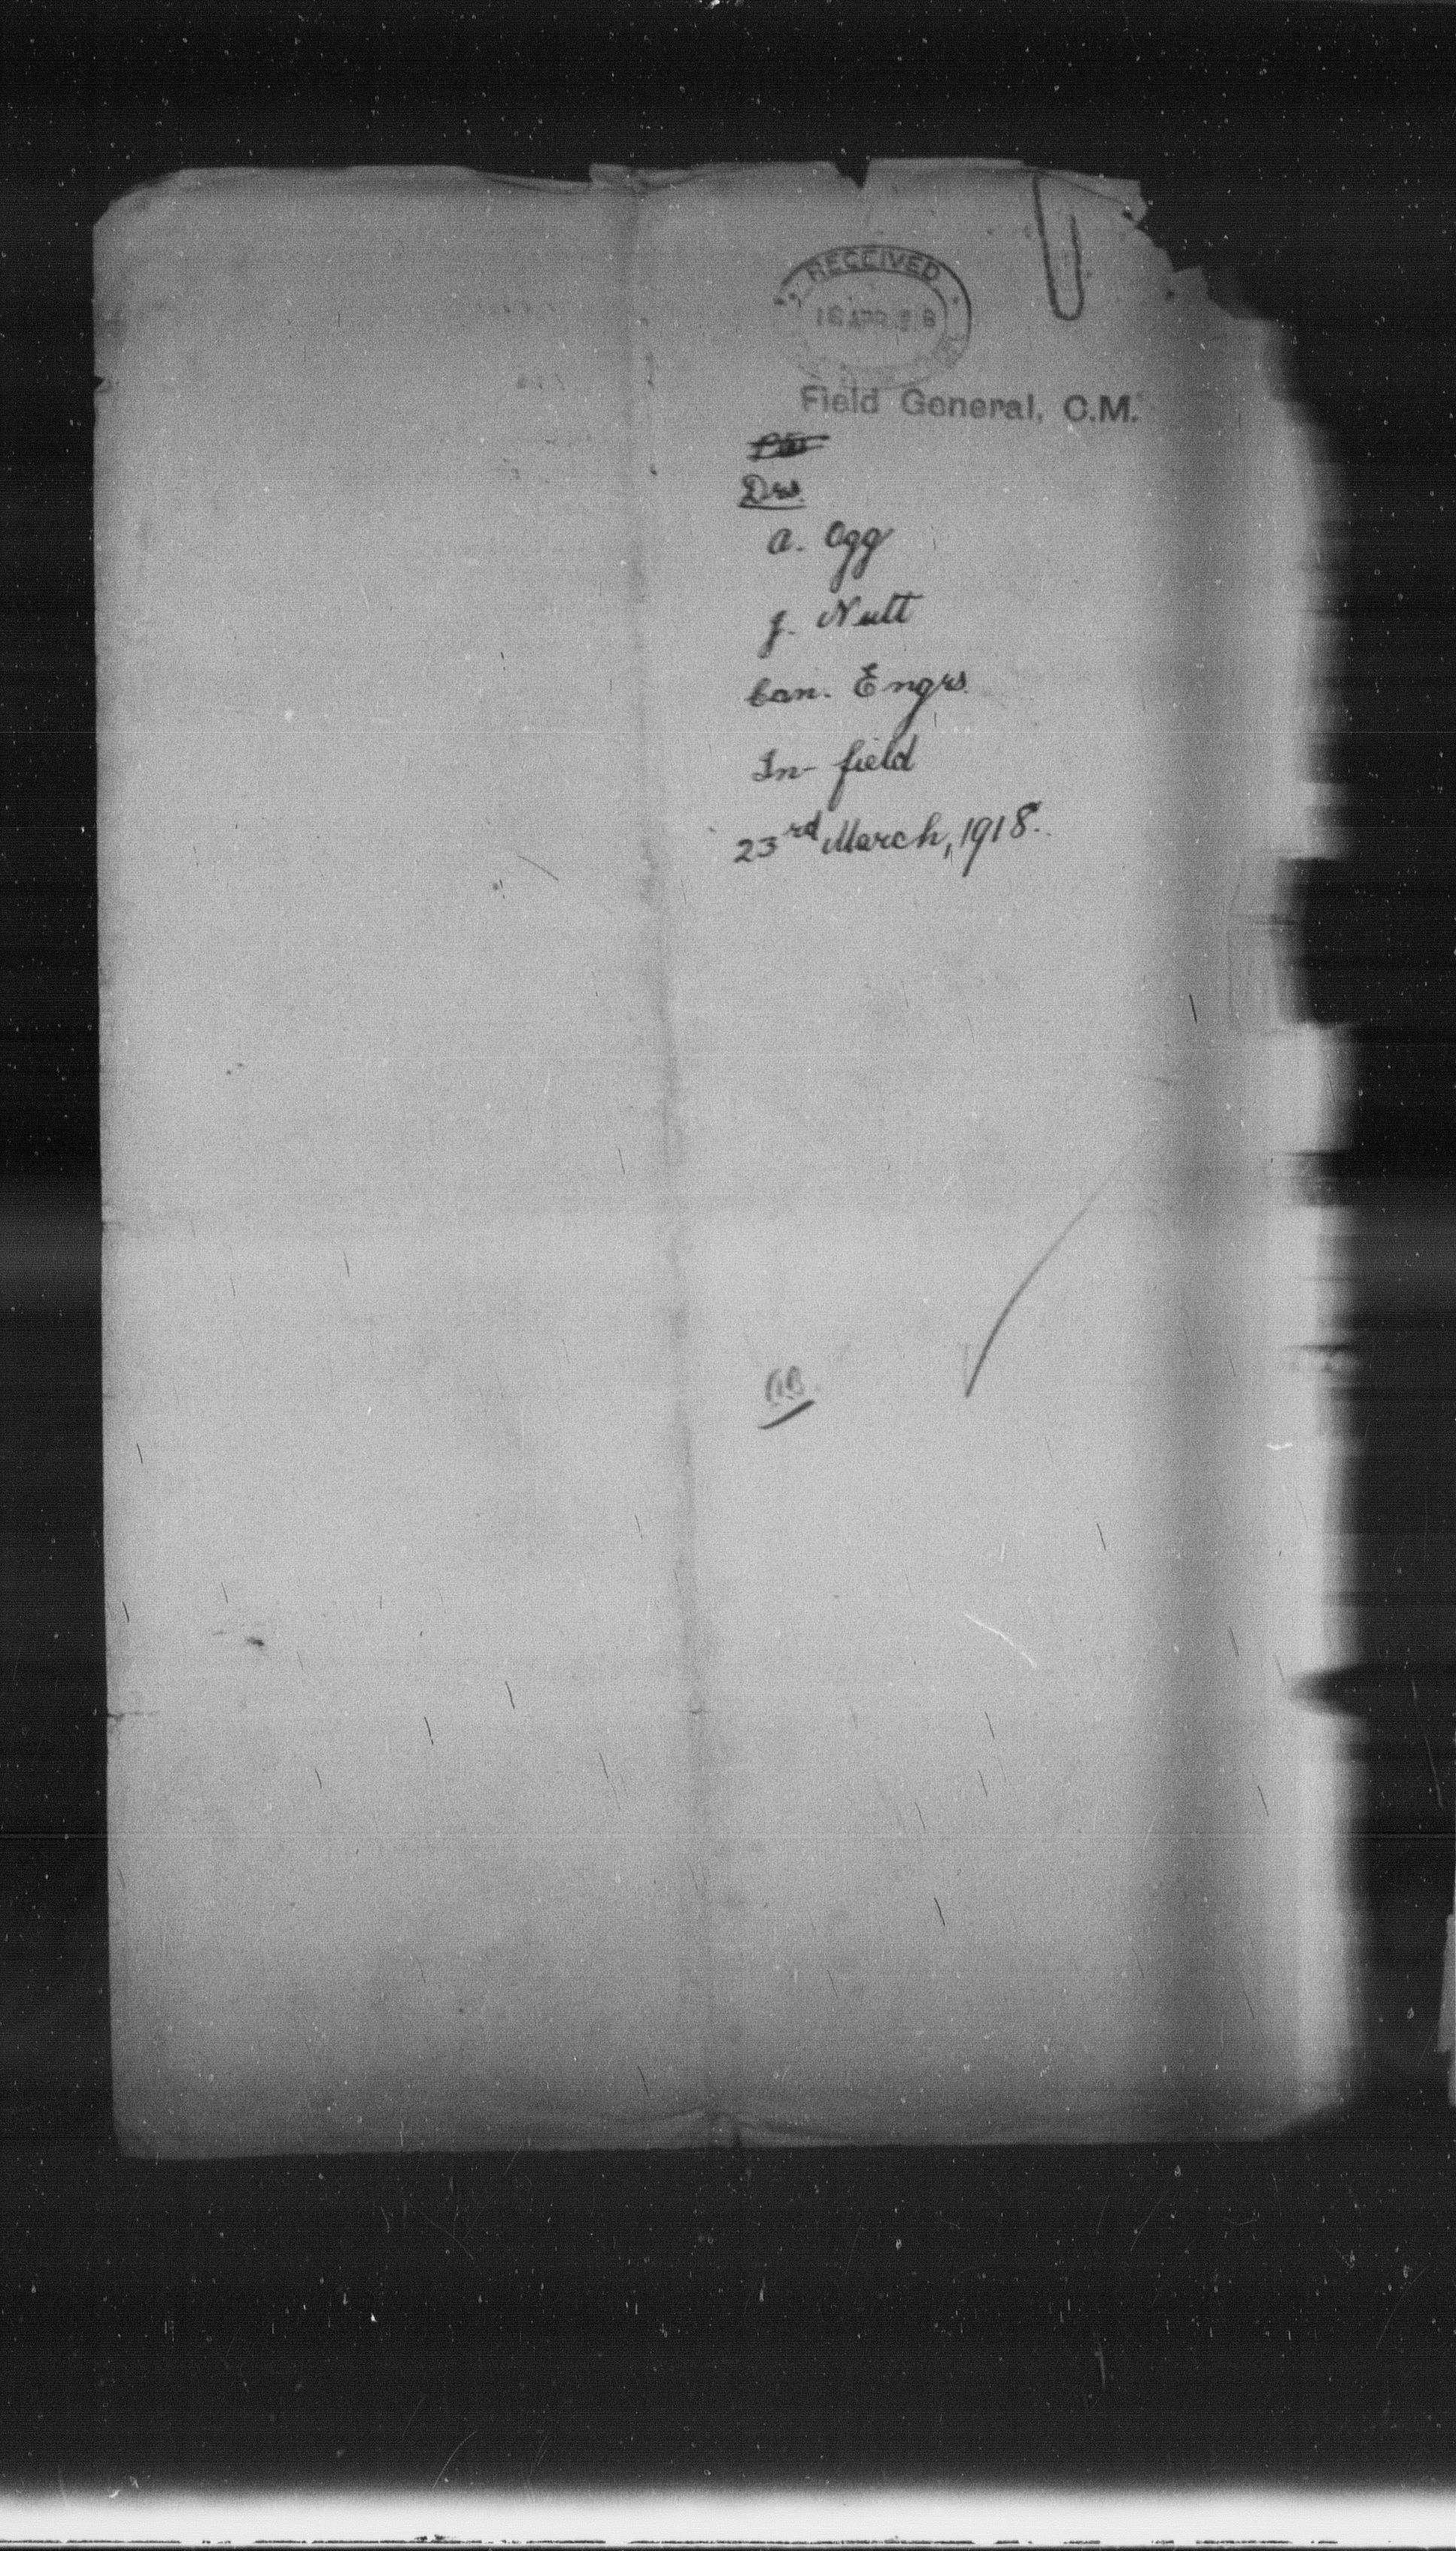 RECEIVED
APR
Field General, C.M.
Drs.
A. Ogg
J. Nutt
Can. Engrs.
In-field
23rd March, 1918.